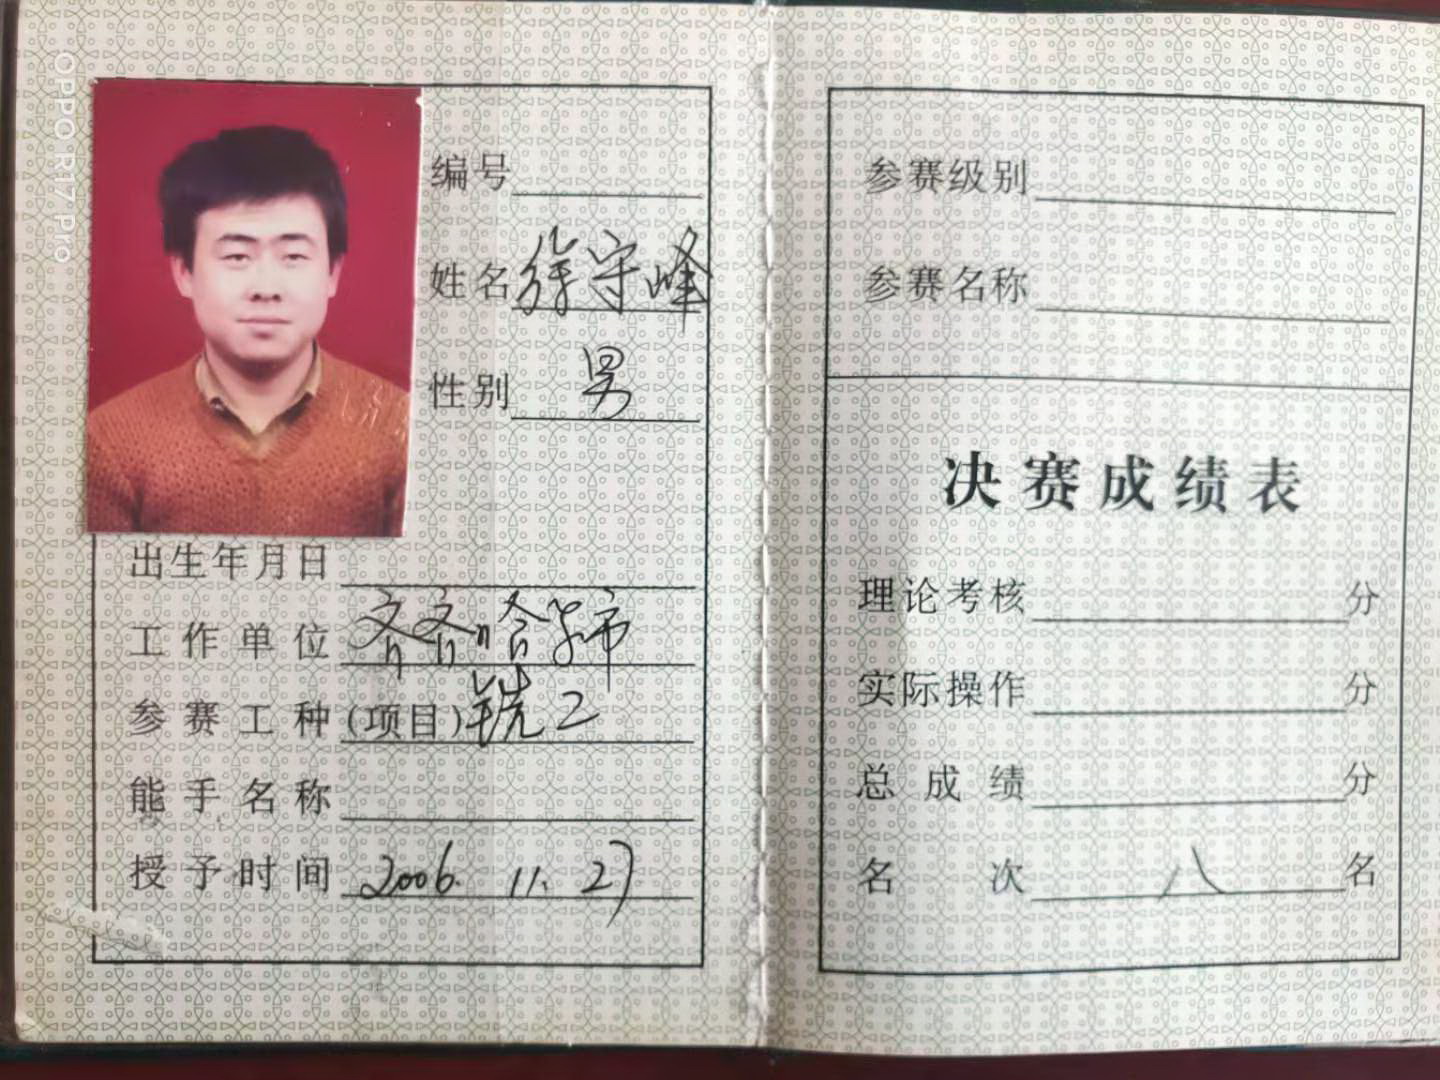 OPPO R17 Pro
编号
姓名 徐守峰
性别 男
出生年月日
工作单位 齐齐哈尔市
参赛工种(项目) 铣工
能手名称
授予时间 2006. 11. 27
参赛级别
参赛名称
决赛成绩表
理论考核 分
实际操作 分
总成绩 分
名次 八 名